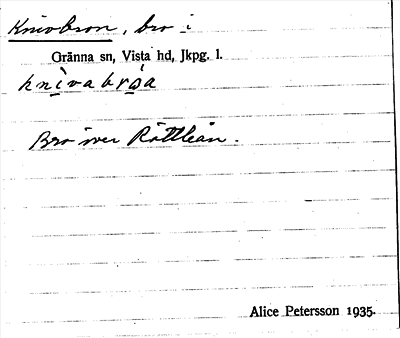 Knivabron, bro i
Gränna sn, Vista hd, Jkpg. l.
knìvabróa
Bro över Röttleån.
Alice Petersson 1935.